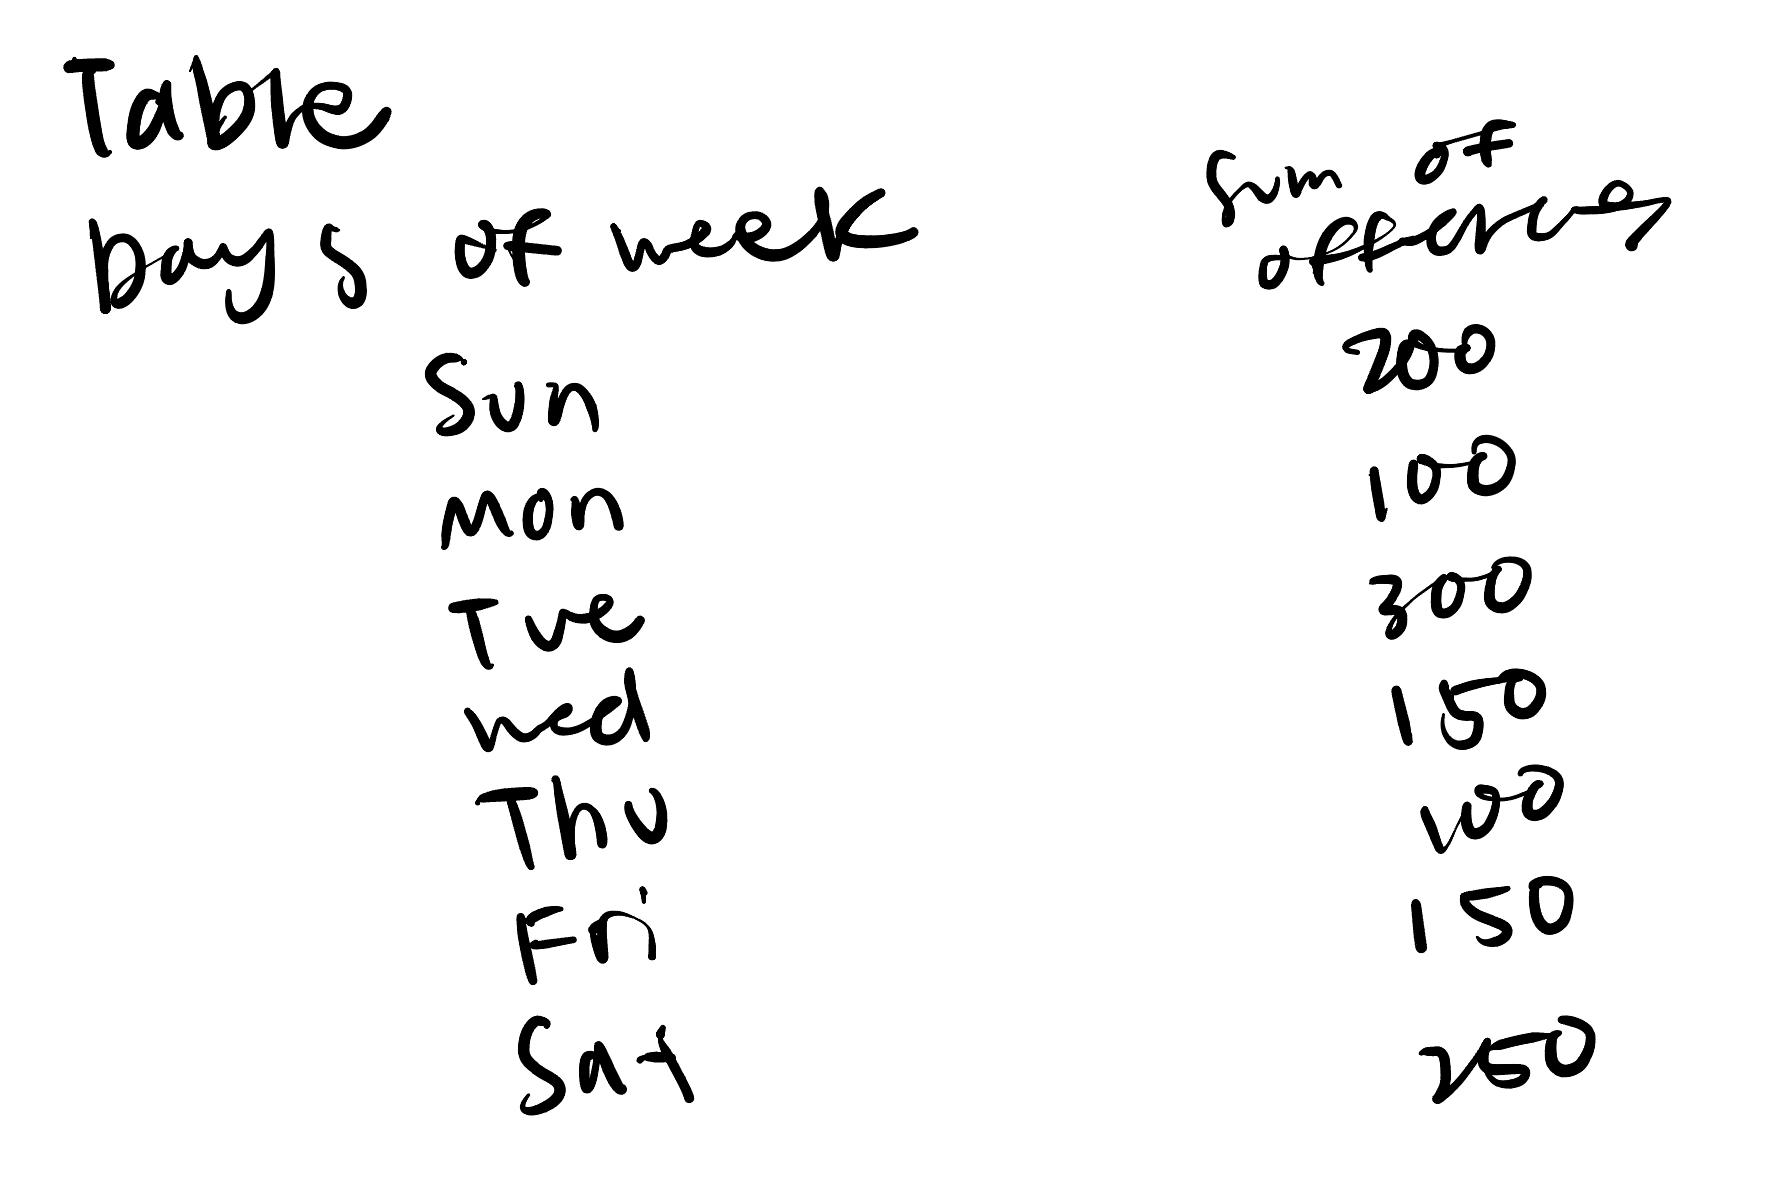 Table
Days of week
Sum of
offences
Sun 200
Mon 100
Tue 300
Wed 150
Thu 100
Fri 150
Sat 250